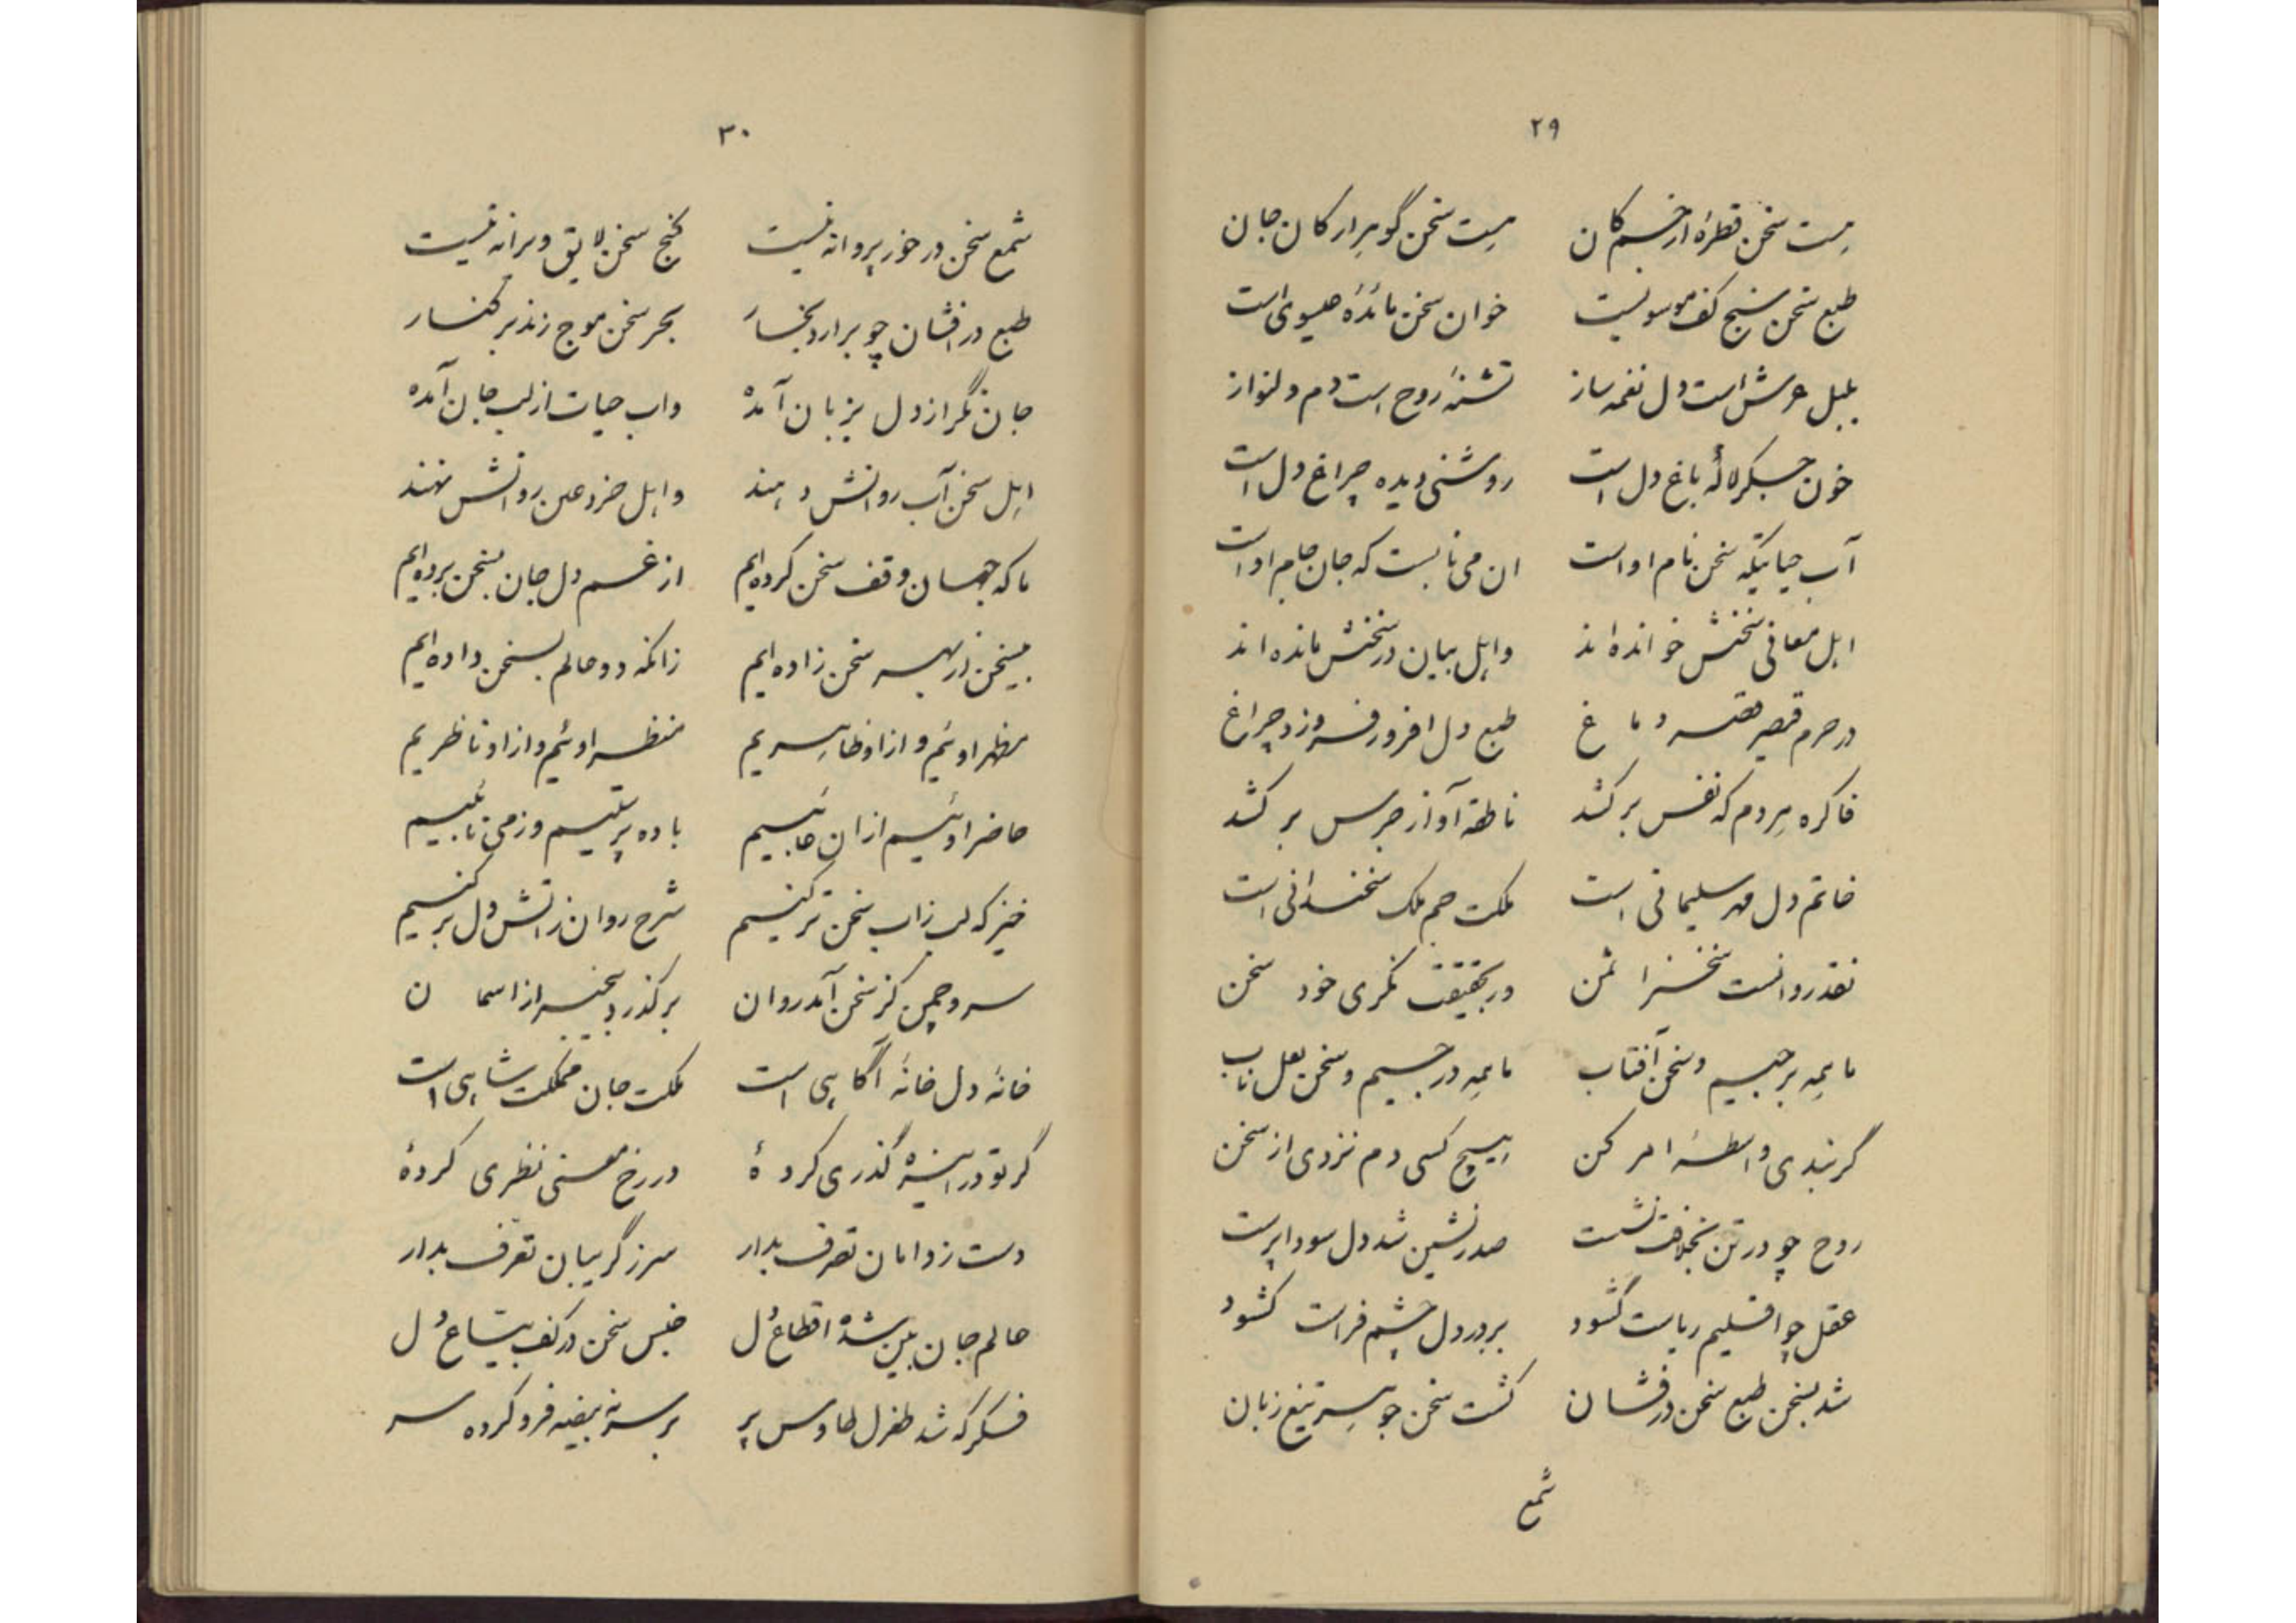 ۲۹
هست سخن قطرهٔ از خسم کان هست سخن گوهر از کان جان
طبع سخن سنج کف موسویست خوان سخن مائدهٔ عیسوی است
بلبل عرش است دل نغمه ساز تشنهٔ روح است دم دلنواز
خون جگر لالهٔ باغ دل است روشنی دیده چراغ دل است
آب حیاتیکه سخن نام او است ان می نابست که جان جام او است
اهل معانی سخنش خوانده اند واهل بیان در سخنش مانده اند
در حرم قیصر قصر دماغ طبع دل افروز فروزد چراغ
فاکره هردم که نفس برکشد ناطقه آواز جرس برکشد
خاتم دل مهر سلیمانی است ملکت جم ملک سخندانی است
نقد روانست سخنرا ثمن در بحقیقت نگری خود سخن
ما همه برجیسیم و سخن آفتاب ما همه درجیم و سخن لعل ناب
گر نبدی واسطهٔ امر کن هیچ کسی دم نزدی از سخن
روح چو در تن بخلافت نشست صدر نشین شد دل سودا پرست
عقل چو اقلیم ریاست گشود بر در دل چشم فراست گشود
شد بسخن طبع سخن درفشان گشت سخن جوهر تیغ زبان
شمع
۳۰
شمع سخن در خور پروانه نیست گنج سخن لایق ویرانه نیست
طبع درافشان چو برارد بخار بحر سخن موج زند بر کنار
جان نگر از دل بزبان آمده واب حیات از لب جان آمده
اهل سخن آب روانش دهند واهل خرد عین روانش نهند
ما که جهان وقف سخن کرده ایم از غم دل جان بسخن برده ایم
بیسخن از بهر سخن زاده ایم زانکه دو عالم بسخن داده ایم
مظهر اوئیم و از او ظاهریم منظر اوئیم و از او ناظریم
حاضر اوئیم ازان غایبیم باده پرستیم وز می تائبیم
خیز که لب زاب سخن تر کنیم شرح روان زاتش دل بر کنیم
سرو چمن کز سخن آمد روان بر گذرد بیخبر از اسمان
خانهٔ دل خانهٔ آگاهی است ملکت جان مملکت شاهی است
گر تو در اینره گذری کردهٔ در رخ معنی نظری کردهٔ
دست ز دامان تصرف بدار سر ز گریبان تعرف بدار
عالم جان بین شده اقطاع دل جنس سخن در کف بیتاع دل
فکر که شد طغرل طاوس پر بر سر نه بیضه فرو کرده سر